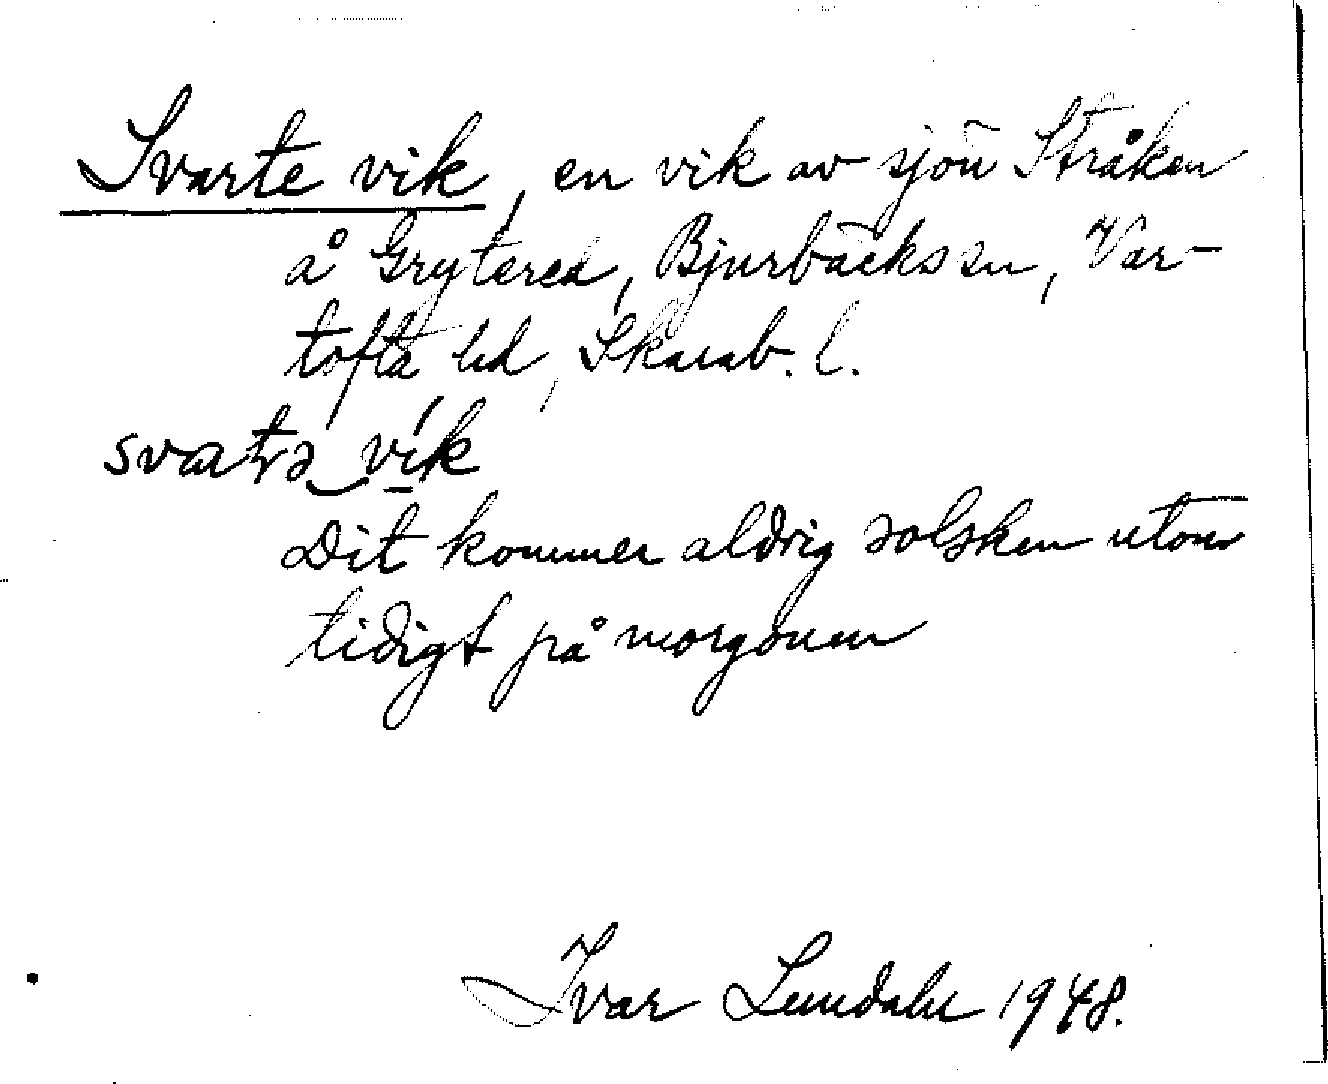 Svarte vik, en vik av sjön Stråken
å Grytered, Bjurbäcks sn, Var-
tofta hd, Skarab. l.
svatə vik
Dit kommer aldrig solsken utom
tidigt på morgonen
Ivar Lundahl 1948.